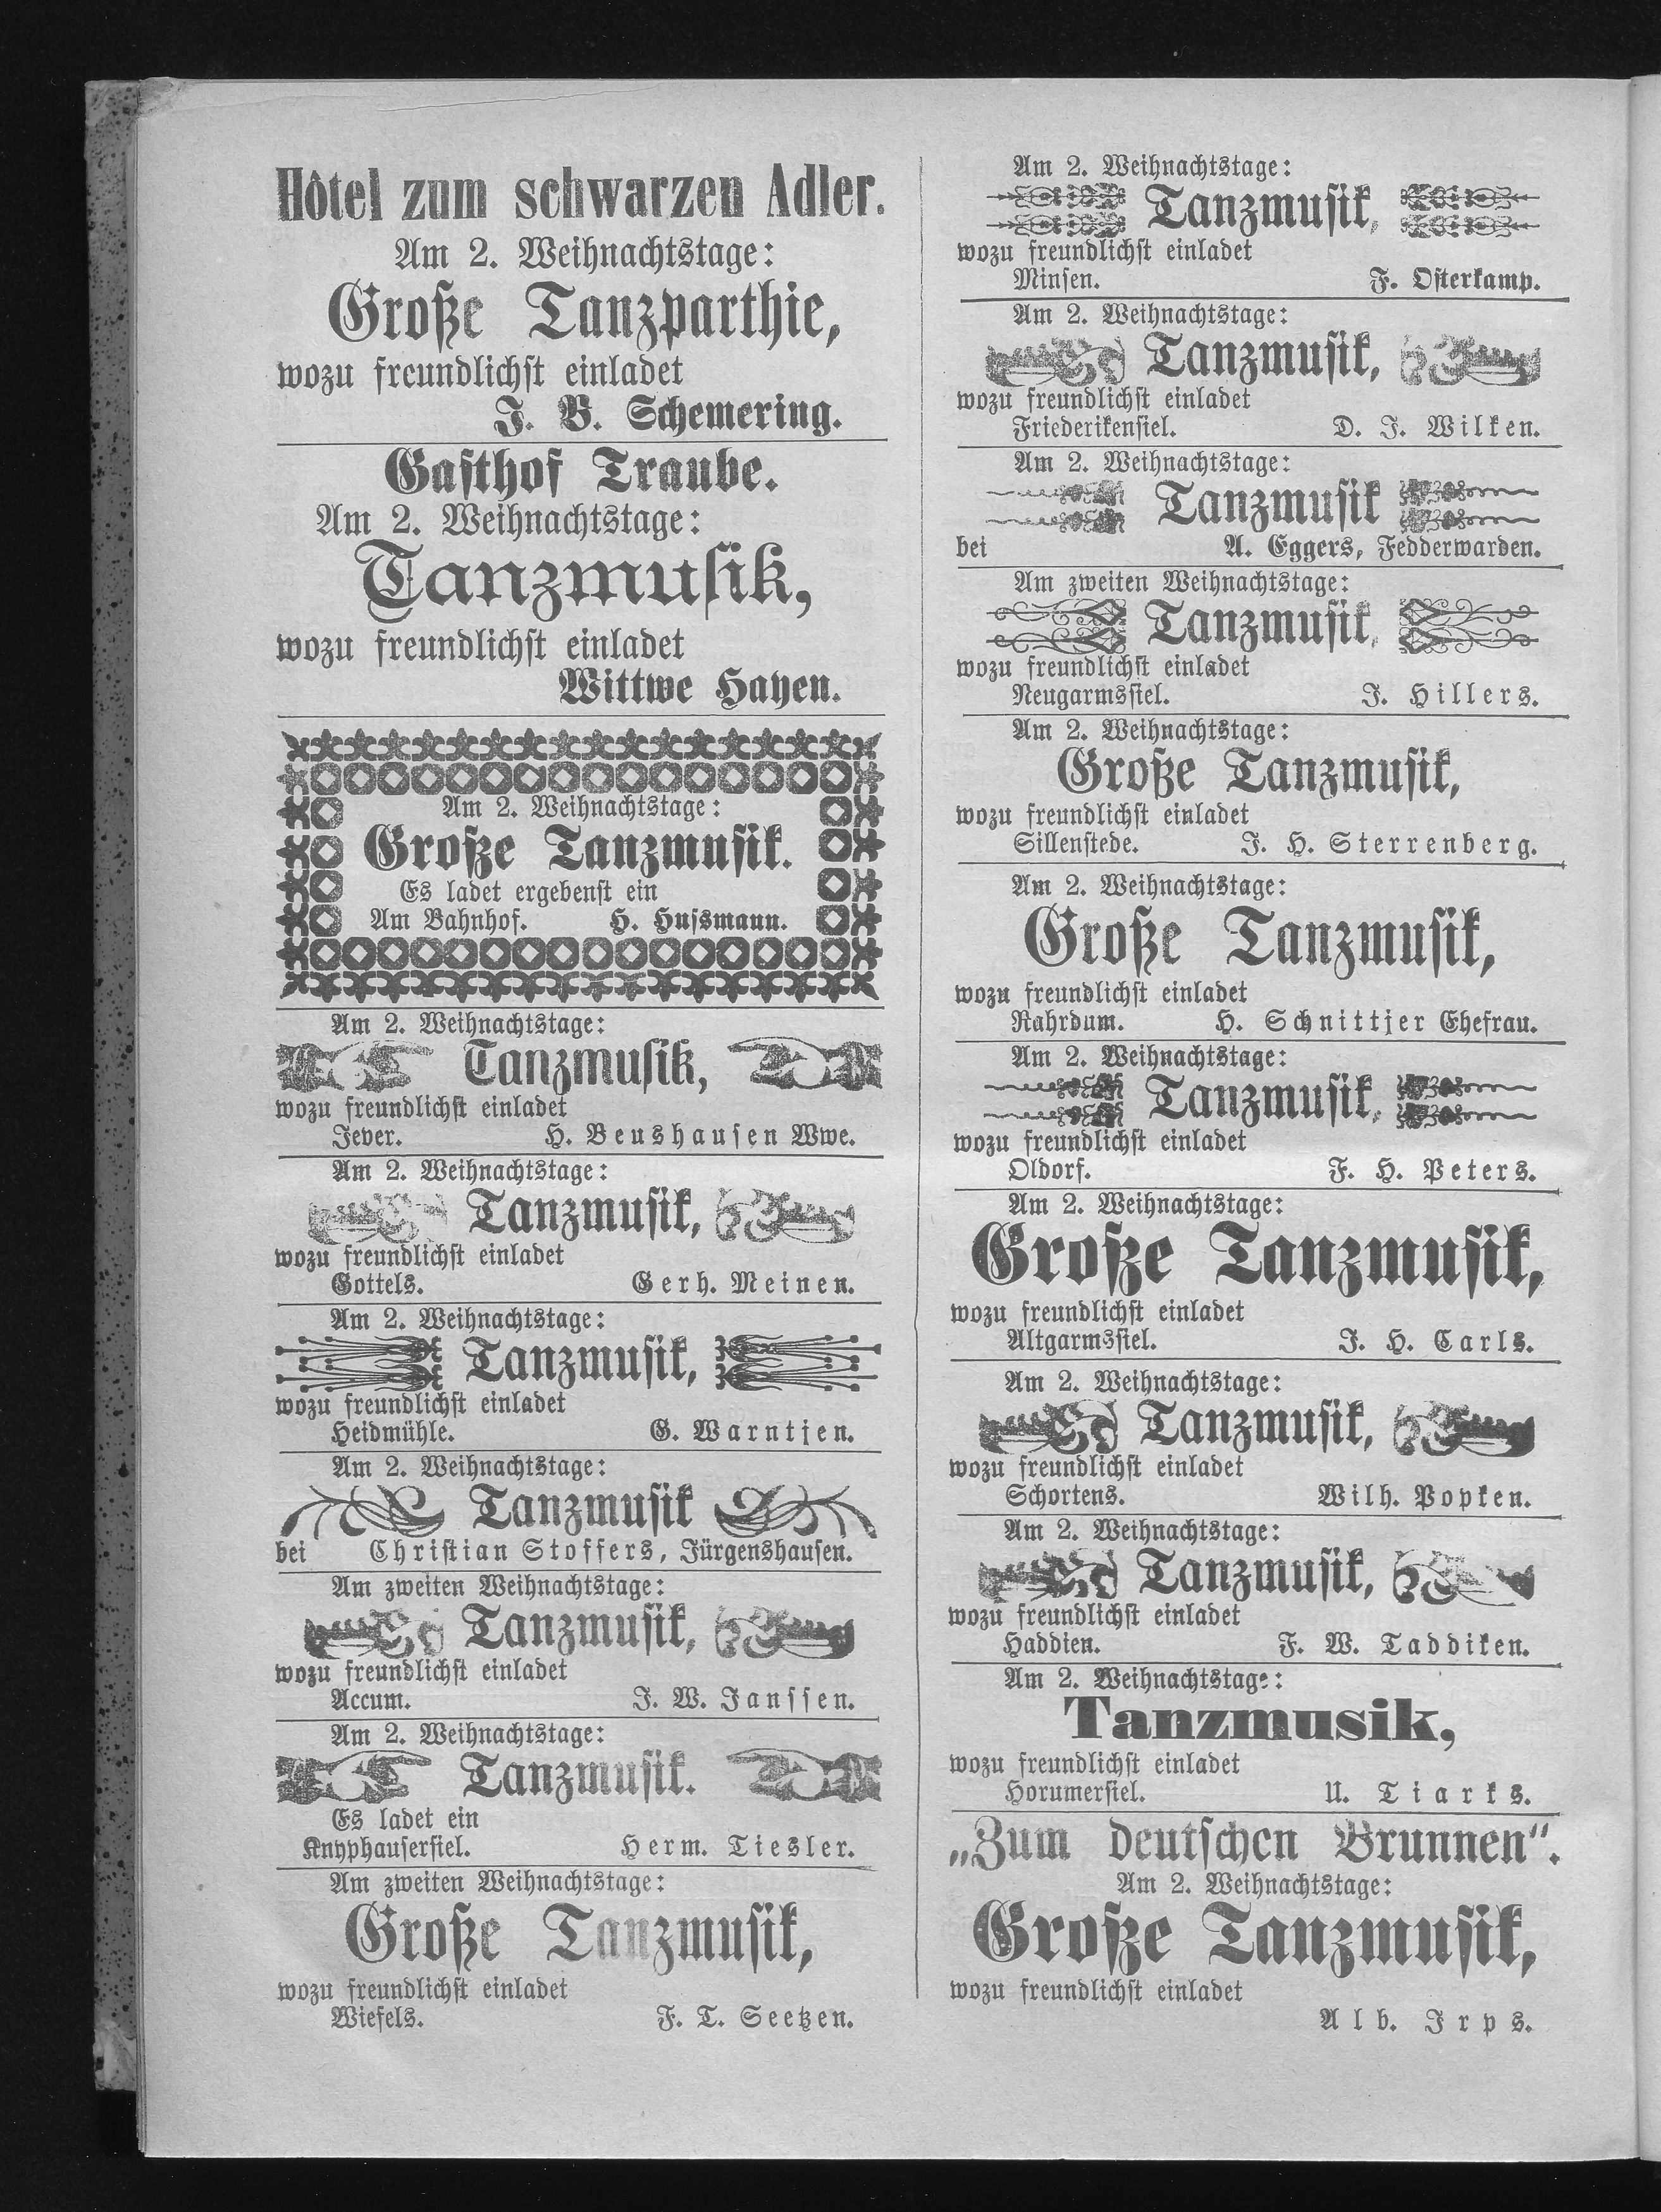 Hôtel zum schwarzen Adler.
Am 2. Weihnachtstage:
Große Tanzparthie,
wozu freundlichst einladet
J. B. Schemering.
Gasthof Traube.
Am 2. Weihnachtstage:
Tanzmusik,
wozu freundlichst einladet
Wittwe Hayen.
Am 2. Weihnachtstage:
Große Tanzmusik.
Es ladet ergebenst ein
Am Bahnhof. H. Husmann.
Am 2. Weihnachtstage:
Tanzmusik,
wozu freundlichst einladet
Jever. H. Beushausen Wwe.
Am 2. Weihnachtstage:
Tanzmusik,
wozu freundlichst einladet
Gottels. Gerh. Meinen.
Am 2. Weihnachtstage:
Tanzmusik,
wozu freundlichst einladet
Heidmühle. G. Warntjen.
Am 2. Weihnachtstage:
Tanzmusik
bei Christian Stoffers, Jürgenshausen.
Am zweiten Weihnachtstage:
Tanzmusik,
wozu freundlichst einladet
Accum. J. W. Janssen.
Am 2. Weihnachtstage:
Tanzmusik.
Es ladet ein
Knyphausersiel. Herm. Tiesler.
Am zweiten Weihnachtstage:
Große Tanzmusik,
wozu freundlichst einladet
Wiefels. F. T. Seetzen.
Am 2. Weihnachtstage:
Tanzmusik,
wozu freundlichst einladet
Minsen. F. Osterkamp.
Am 2. Weihnachtstage:
Tanzmusik,
wozu freundlichst einladet
Friederikensiel. D. J. Wilken.
Am 2. Weihnachtstage:
Tanzmusik
bei A. Eggers, Fedderwarden.
Am zweiten Weihnachtstage:
Tanzmusik,
wozu freundlichst einladet
Neugarmssiel. J. Hillers.
Am 2. Weihnachtstage:
Große Tanzmusik,
wozu freundlichst einladet
Sillenstede. J. H. Sterrenberg.
Am 2. Weihnachtstage:
Große Tanzmusik,
wozu freundlichst einladet
Rahrdum. H. Schnittjer Ehefrau.
Am 2. Weihnachtstage:
Tanzmusik,
wozu freundlichst einladet
Oldorf. F. H. Peters.
Am 2. Weihnachtstage:
Große Tanzmusik,
wozu freundlichst einladet
Altgarmssiel. J. H. Carls.
Am 2. Weihnachtstage:
Tanzmusik,
wozu freundlichst einladet
Schortens. Wilh. Popken.
Am 2. Weihnachtstage:
Tanzmusik,
wozu freundlichst einladet
Haddien. F. W. Taddiken.
Am 2. Weihnachtstage:
Tanzmusik,
wozu freundlichst einladet
Horumersiel. U. Tiarks.
„Zum deutschen Brunnen“.
Am 2. Weihnachtstage:
Große Tanzmusik,
wozu freundlichst einladet
Alb. Irps.